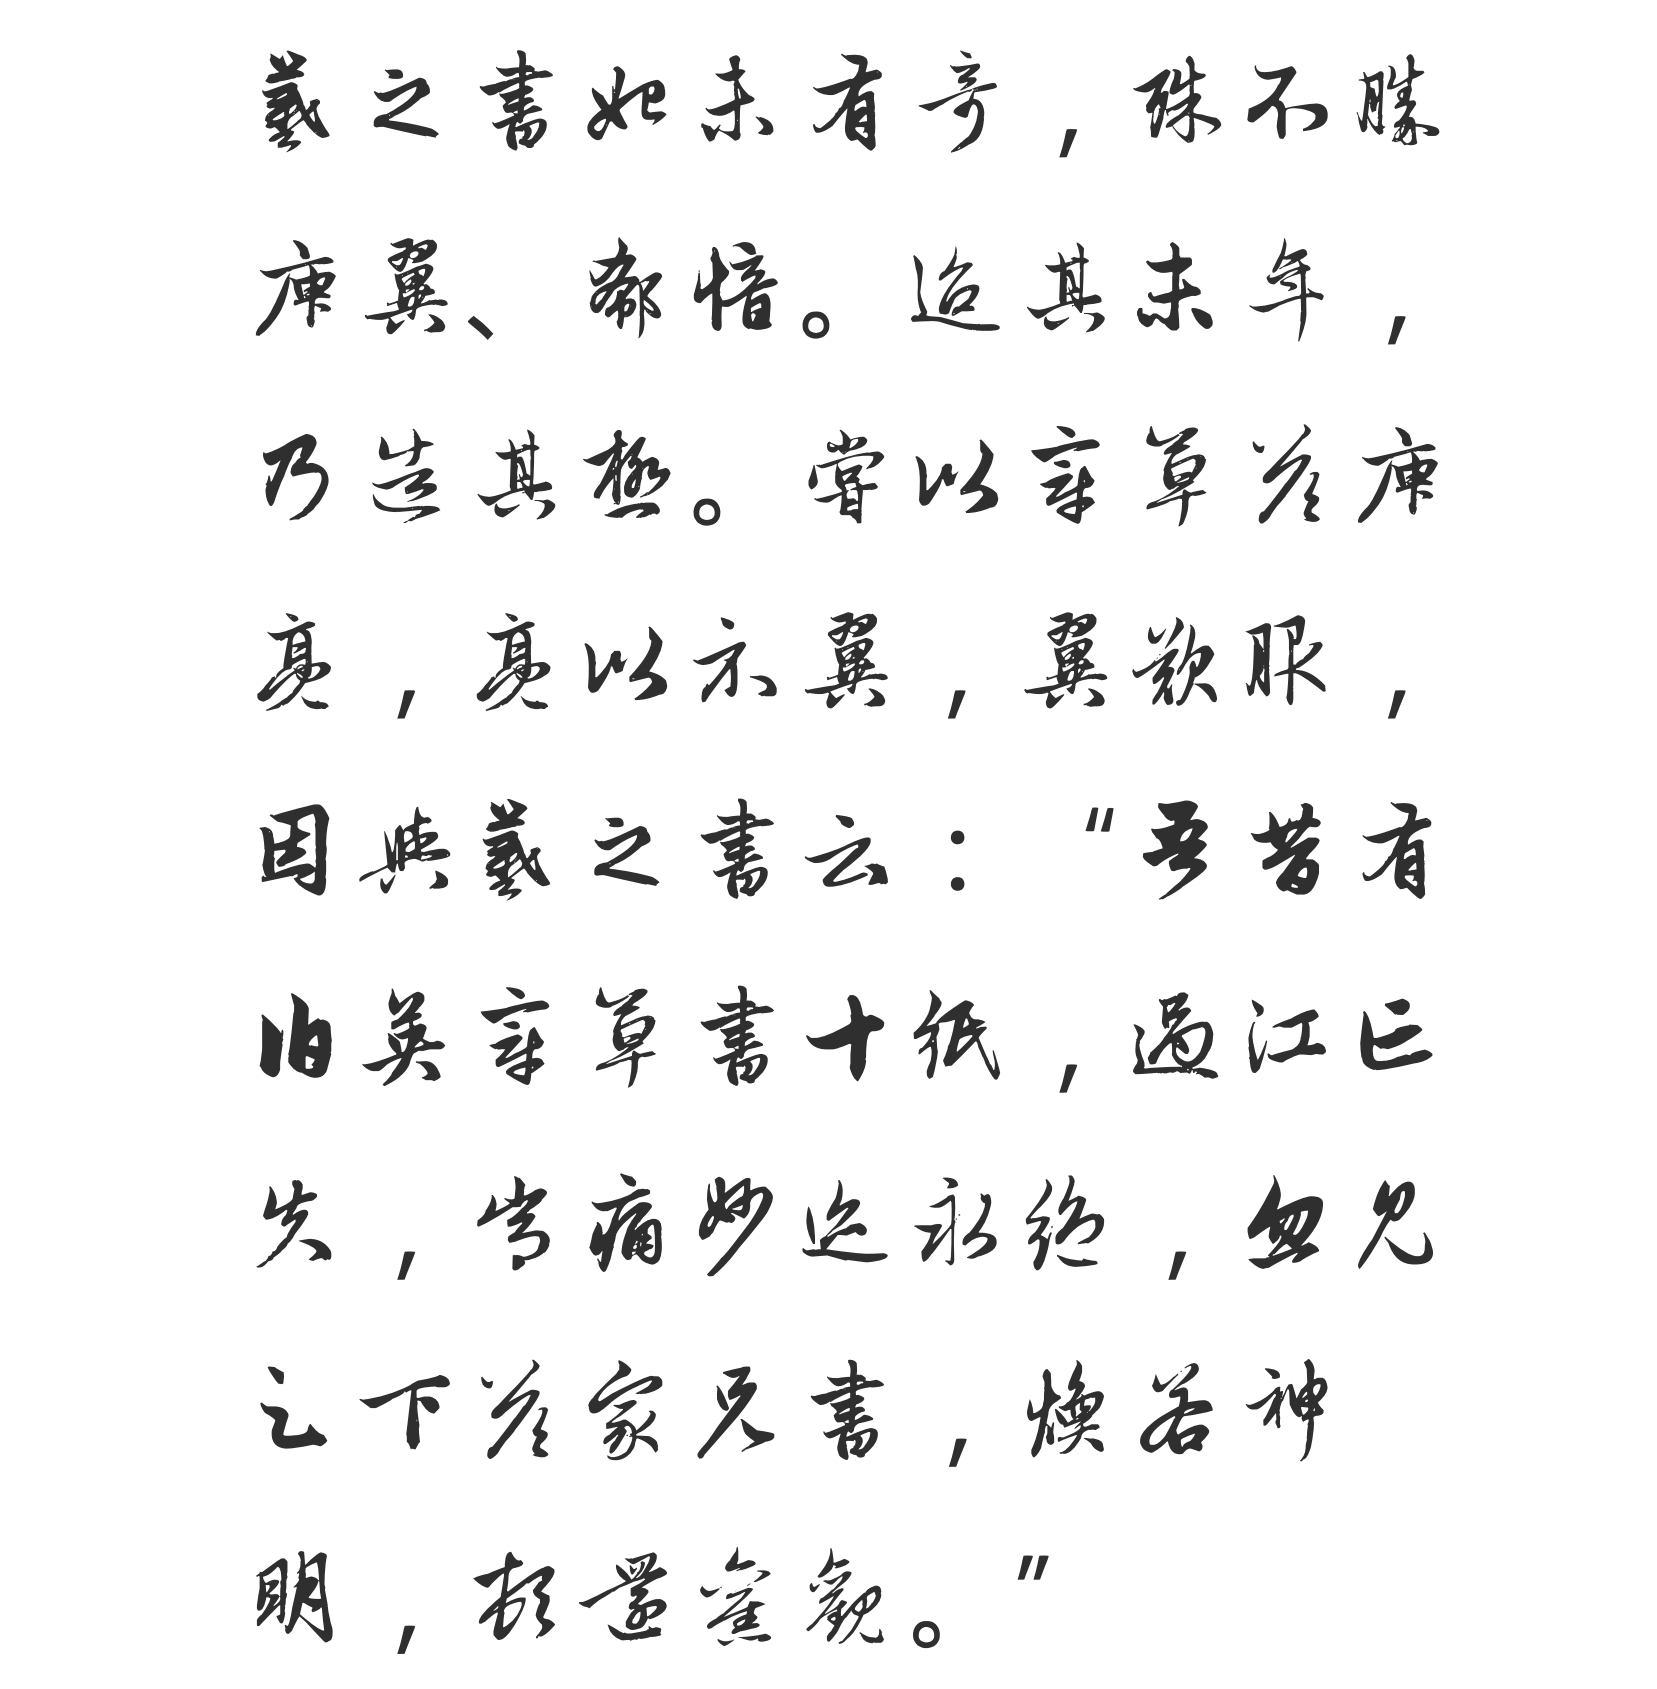 羲之書始未有奇，殊不勝
庾翼、郗愔。迨其末年，
乃造其極。嘗以章草答庾
亮，亮以示翼，翼歎服，
因與羲之書云：“吾昔有
伯英章草書十紙，過江亡
失，常痛妙迹永絕，忽見
足下答家兄書，煥若神
明，頓還舊觀。”